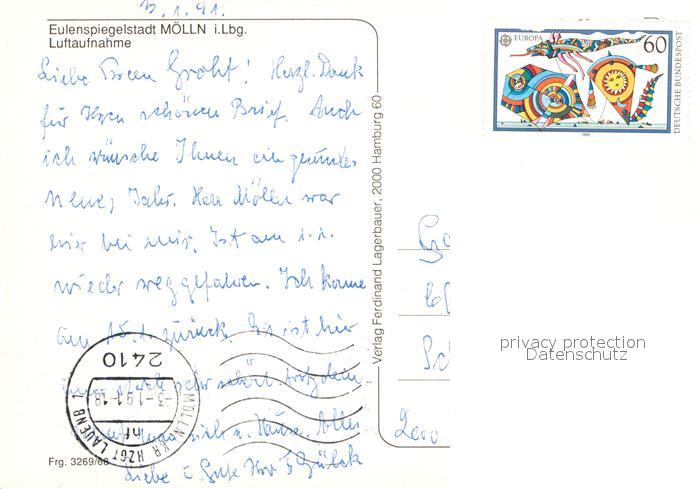 3.1.91.
Eulenspiegelstadt MÖLLN i.Lbg.
Luftaufnahme
Liebe Frau Groht! Herzl. Dank
für Ihren schönen Brief. Auch
ich wünsche Ihnen ein gesundes
neues Jahr. Herr Möller war
hier bei mir. Ist am 1.1.
wieder weggefahren. Ich komme
am 15.1. zurück. Es ist hier
sehr schön, trotzdem
n. Hause. Alles
Liebe u. Gute Ihre
Frg. 3269/68
Verlag Ferdinand Lagerbauer, 2000 Hamburg 60
EUROPA
60
DEUTSCHE BUNDESPOST
1989
2000
2410
-3.-1.91-18
hf
MÖLLN KR HZGT LAUENB 1
privacy protection
Datenschutz